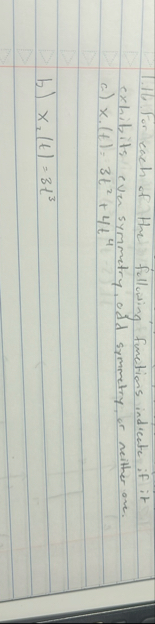 1.16 for each of the following functions indicate if it
exhibits even symmetry, odd symmetry, or neither one.
a) x,(t) = 3t² + 4t⁴
b) x,(t) = 3t³